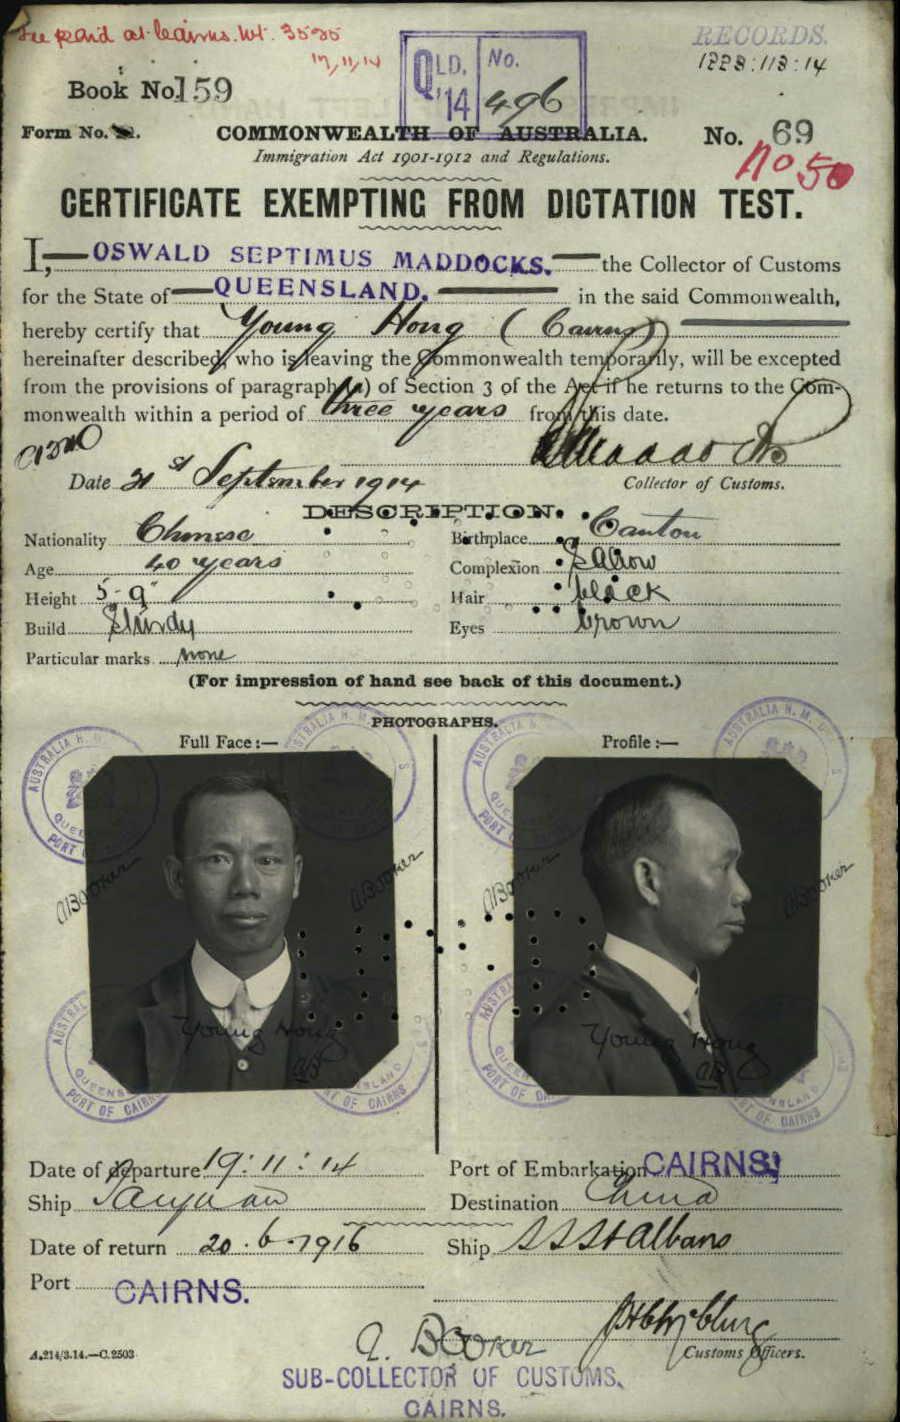 Fee paid at Cairns
17/11/14
QLD. '14 No. 496
RECORDS.
Book No. 159
Form No.
COMMONWEALTH OF AUSTRALIA.
No. 69
No 50
Immigration Act 1901-1912 and Regulations.
CERTIFICATE EXEMPTING FROM DICTATION TEST.
I, OSWALD SEPTIMUS MADDOCKS. the Collector of Customs
for the State of QUEENSLAND. in the said Commonwealth,
hereby certify that Young Hong (Cairns)
hereinafter described, who is leaving the Commonwealth temporarily, will be excepted
from the provisions of paragraph (a) of Section 3 of the Act if he returns to the Com-
monwealth within a period of three years from this date.
Date 21st September 1914
Collector of Customs.
DESCRIPTION.
Nationality Chinese Birthplace Canton
Age 40 years Complexion Sallow
Height 5-9" Hair black
Build Sturdy Eyes brown
Particular marks none
(For impression of hand see back of this document.)
PHOTOGRAPHS.
Full Face :— Profile :—
AUSTRALIA H. M.
QUEENSLAND
PORT OF CAIRNS
A Booker A Booker A Booker A Booker
Young Hong Young Hong
Date of departure 19:11:14 Port of Embarkation CAIRNS,
Ship Taiyuan Destination China
Date of return 20.6.1916 Ship SS St Albans
Port CAIRNS.
A. Booker
A.214/3.14.—C.2503
Customs Officers.
SUB-COLLECTOR OF CUSTOMS,
CAIRNS.